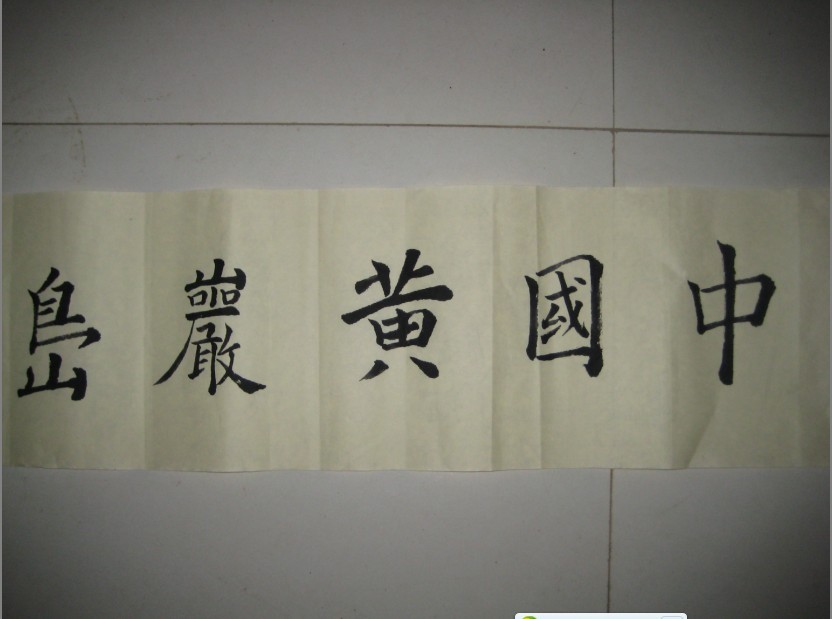 中國黃巖島